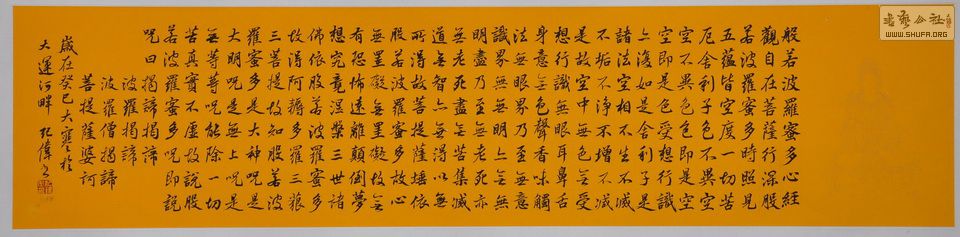 般若波羅蜜多心經
觀自在菩薩行深般
若波羅蜜多時照見
五蘊皆空度一切苦
厄舍利子色不異空
空不異色色即是空
空即是色受想行識
亦復如是舍利子是
諸法空相不生不滅
不垢不淨不增不減
是故空中無色無受
想行識無眼耳鼻舌
身意無色聲香味觸
法無眼界乃至無意
識界無無明亦無無
明盡乃至無老死亦
無老死盡無苦集滅
道無智亦無得以無
所得故菩提薩埵依
般若波羅蜜多故心
無罣礙無罣礙故無
有恐怖遠離顛倒夢
想究竟涅槃三世諸
佛依般若波羅蜜多
故得阿耨多羅三藐
三菩提故知般若波
羅蜜多是大神呪是
大明呪是無上呪是
無等等呪能除一切
苦真實不虛故說般
若波羅蜜多呪即說
呪曰揭諦揭諦
波羅揭諦
波羅僧揭諦
菩提薩婆訶
歲在癸巳大寒於
大運河畔 孔偉書
書藝公社
WWW.SHUFA.ORG